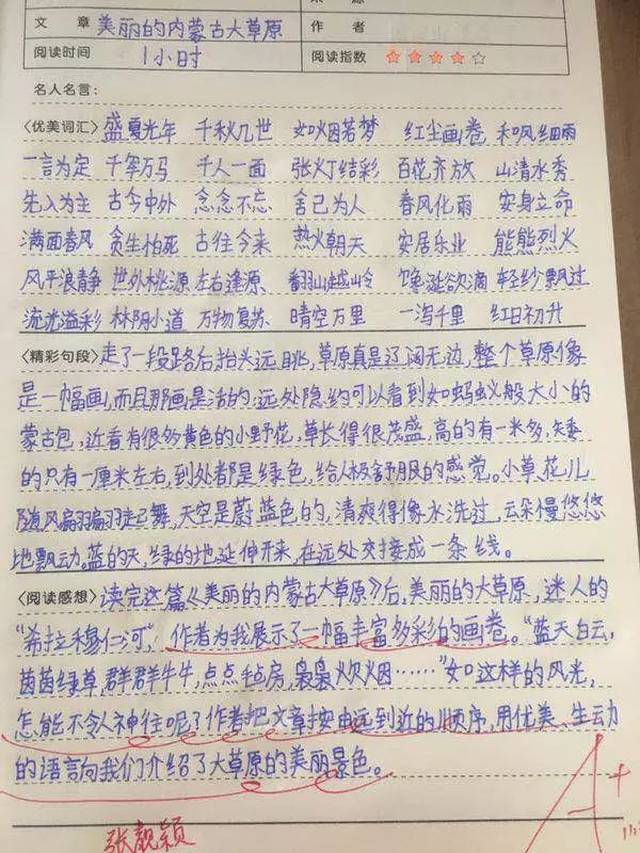 文 章 美丽的内蒙古大草原 作 者
阅读时间 1小时 阅读指数 ☆☆☆☆☆
名人名言:
〈优美词汇〉盛夏光年 千秋几世 如烟若梦 红尘画卷 和风细雨
一言为定 千军万马 千人一面 张灯结彩 百花齐放 山清水秀
先入为主 古今中外 念念不忘 舍己为人 春风化雨 安身立命
满面春风 贪生怕死 古往今来 热火朝天 安居乐业 熊熊烈火
风平浪静 世外桃源 左右逢源、 翻山越岭 馋涎欲滴 轻纱飘过
流光溢彩 林阴小道 万物复苏 晴空万里 一泻千里 红日初升
〈精彩句段〉走了一段路后抬头远眺,草原真是辽阔无边,整个草原像
是一幅画,而且那画是活的,远处隐约可以看到如蚂蚁般大小的
蒙古包,近看有很多黄色的小野花,草长得很茂盛,高的有一米多,矮
的只有一厘米左右,到处都是绿色,给人极舒服的感觉。小草、花儿
随风翩翩起舞,天空是蔚蓝色的,清爽得像水洗过,云朵慢悠悠
地飘动。蓝的天,绿的地延伸开来,在远处交接成一条线。
〈阅读感想〉读完这篇《美丽的内蒙古大草原》后,美丽的大草原,迷人的
“希拉穆仁河”,作者为我展示了一幅丰富多彩的画卷。“蓝天白云,
茵茵绿草,群群牛牛,点点毡房,袅袅炊烟……”如这样的风光,
怎能不令人神往呢?作者把文章按由远到近的顺序,用优美、生动
的语言向我们介绍了大草原的美丽景色。
A+
张靓颖